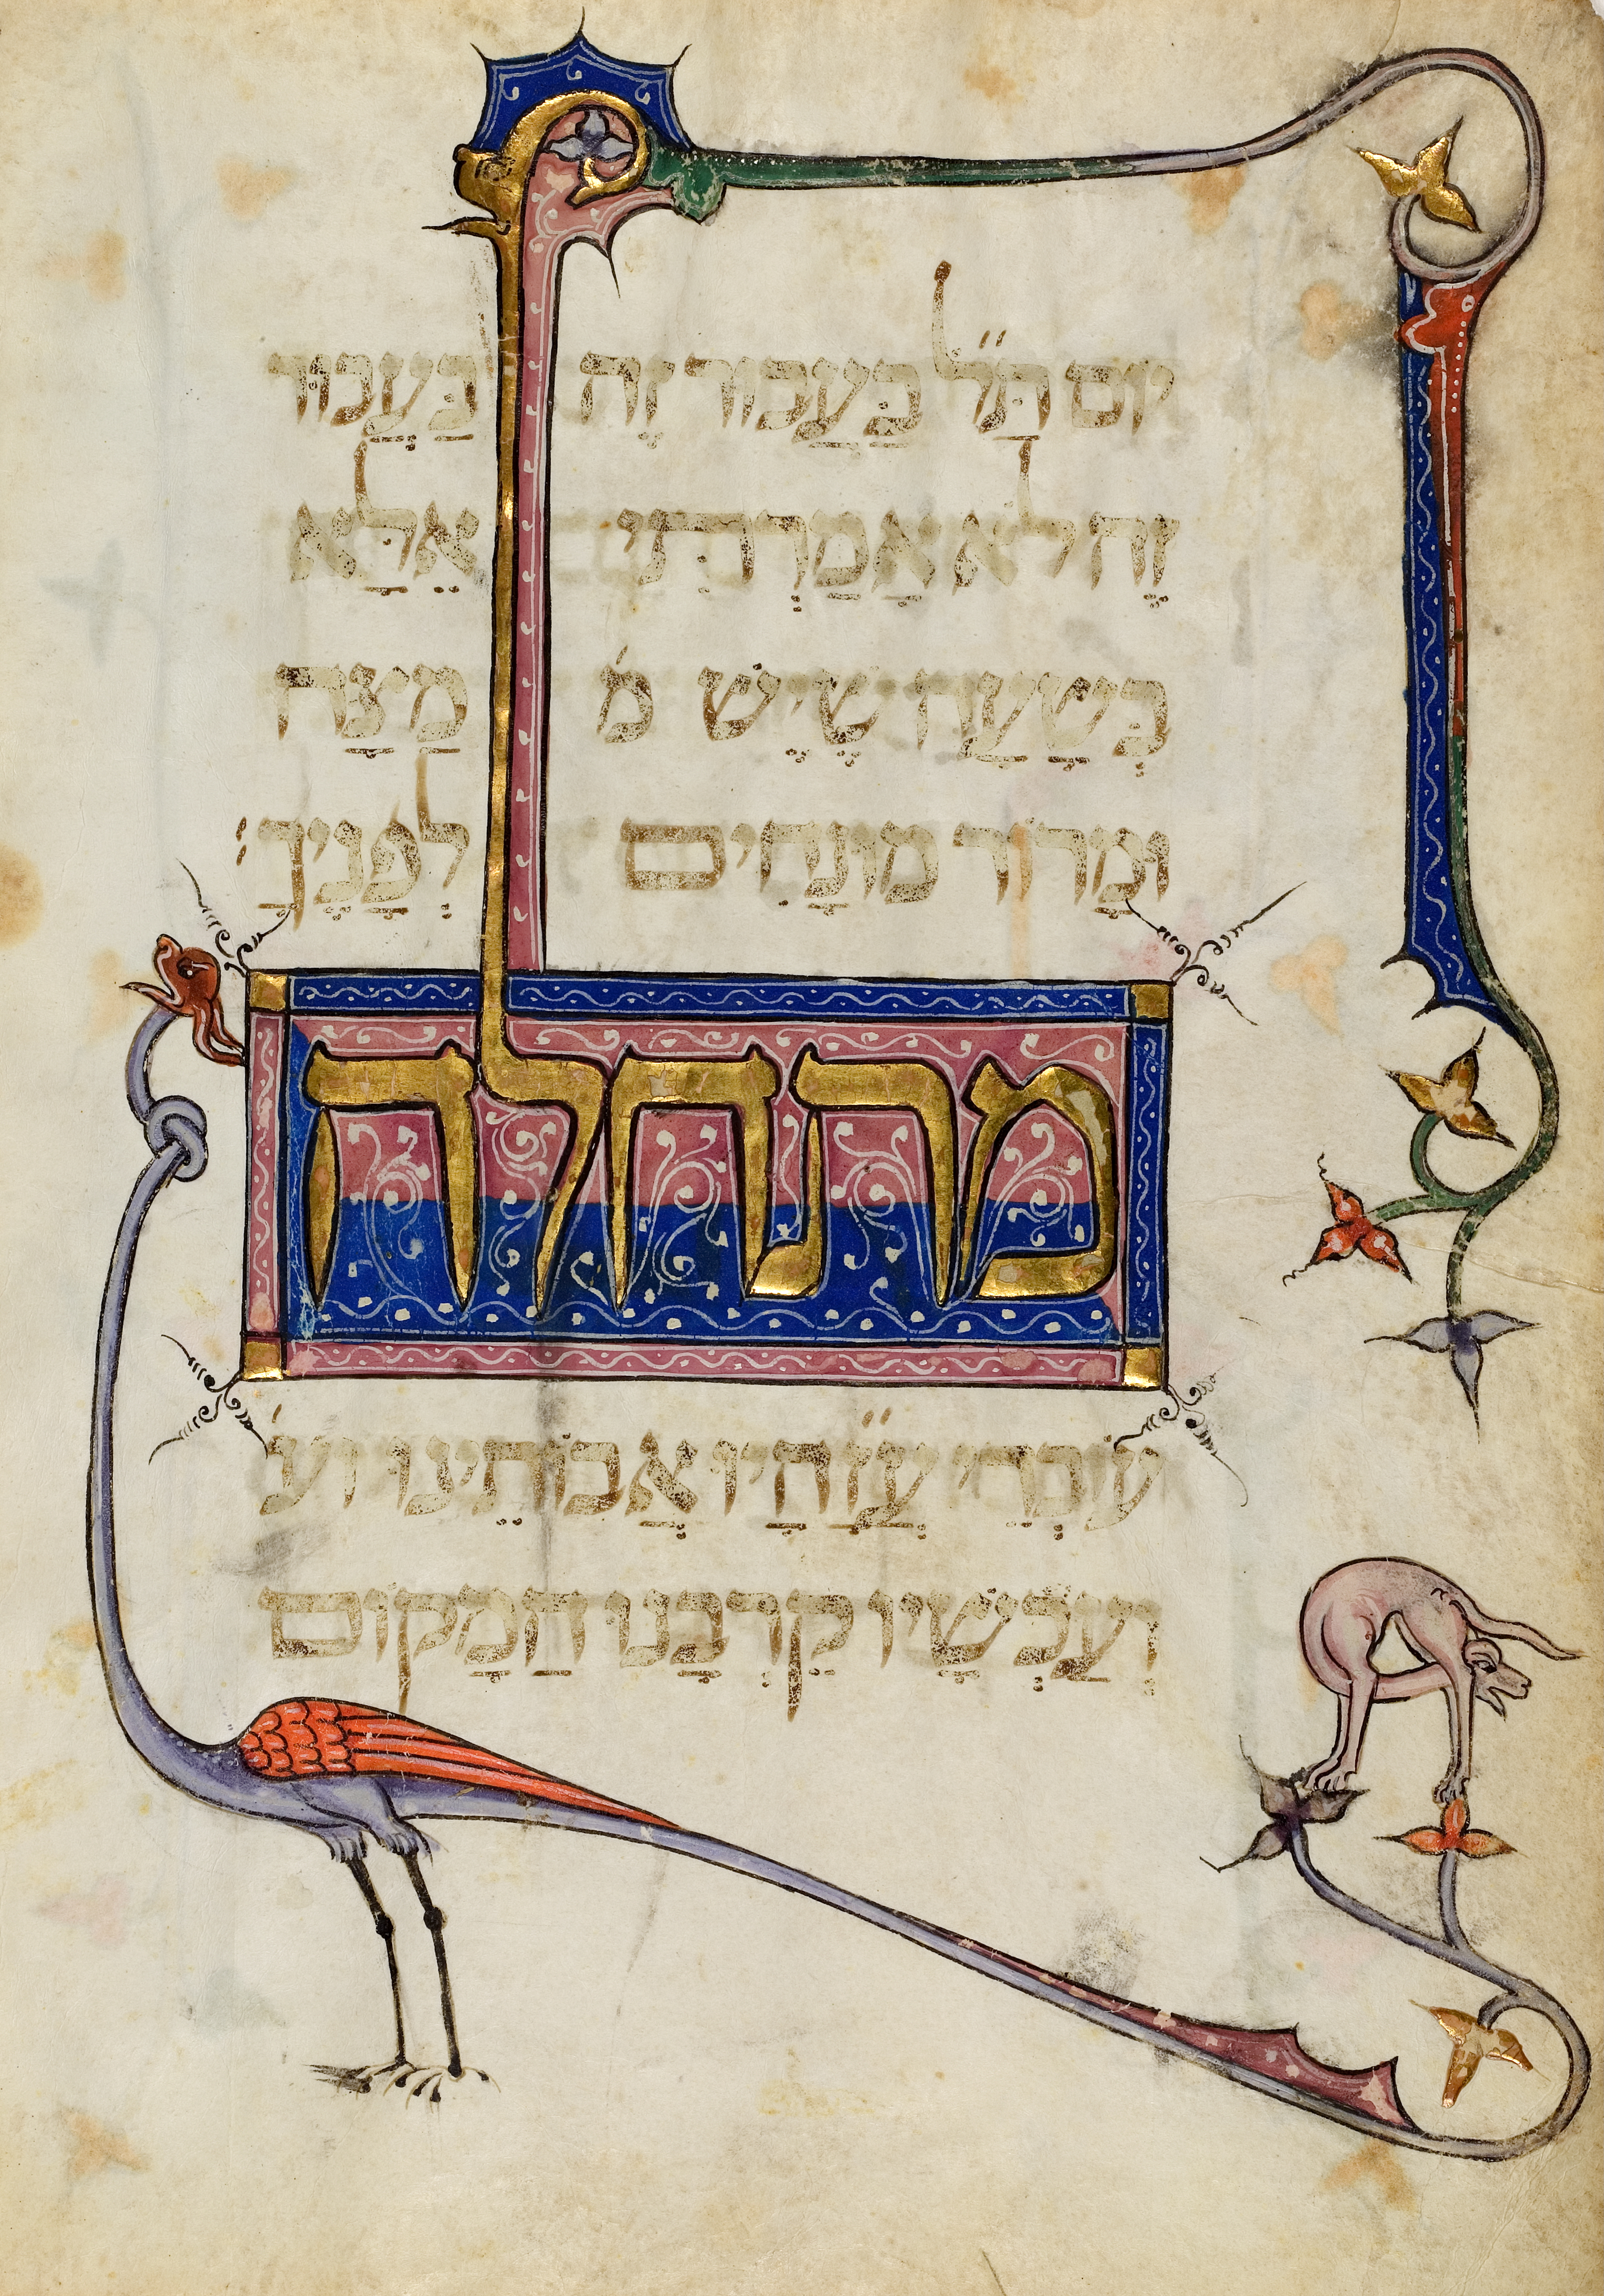 יוֹם תַּ״ל בַּעֲבוּר זֶה בַּעֲבוּר
זֶה לֹא אָמַרְתִּי אֶלָּא
בְּשָׁעָה שֶׁיֵּשׁ מ׳ מַצָּה
וּמָרוֹר מוּנָחִים לְפָנֶיךָ׃
מתחלה
עוֹבְדֵי ע״ז הָיוּ אֲבוֹתֵינוּ וע׳
וְעַכְשָׁיו קֵרְבָנוּ הַמָּקוֹם